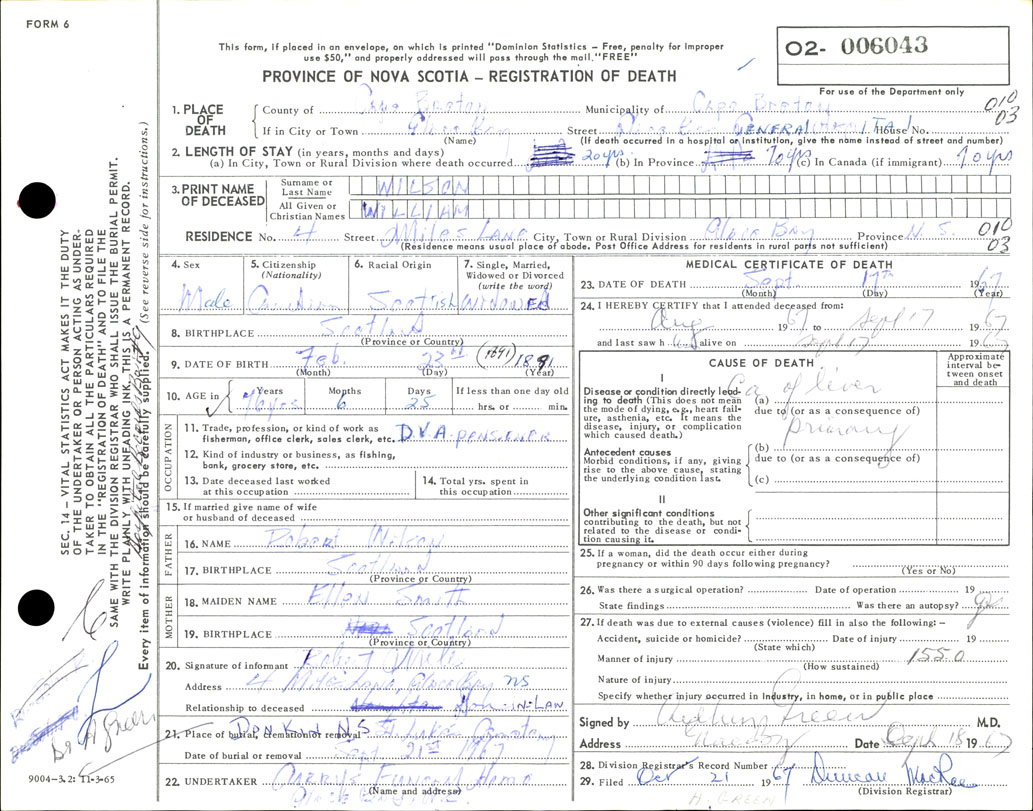 FORM 6
This form, if placed in an envelope, on which is printed "Dominion Statistics – Free, penalty for improper
use $50," and properly addressed will pass through the mail. "FREE"
PROVINCE OF NOVA SCOTIA – REGISTRATION OF DEATH
O2- 006043
For use of the Department only
010
03
1. PLACE OF DEATH
County of Cape Breton Municipality of Cape Breton
If in City or Town Glace Bay Street Glace Bay GENERAL HOSPITAL House No.
(Name) (If death occurred in a hospital or institution, give the name instead of street and number)
2. LENGTH OF STAY (in years, months and days)
(a) In City, Town or Rural Division where death occurred 20 yrs (b) In Province 70 yrs (c) In Canada (if immigrant) 70 yrs
3. PRINT NAME OF DECEASED
Surname or Last Name WILSON
All Given or Christian Names WILLIAM
RESIDENCE No. 4 Street Miles Lane City, Town or Rural Division Glace Bay Province N.S.
(Residence means usual place of abode. Post Office Address for residents in rural parts not sufficient)
010
03
4. Sex Male
5. Citizenship (Nationality) Canadian
6. Racial Origin Scotish
7. Single, Married, Widowed or Divorced (write the word) WIDOWED
8. BIRTHPLACE Scotland
(Province or Country)
9. DATE OF BIRTH Feb. 23rd (1891) 1891
(Month) (Day) (Year)
10. AGE in Years 76 yrs Months 6 Days 25 If less than one day old hrs. or min.
OCCUPATION
11. Trade, profession, or kind of work as
fisherman, office clerk, sales clerk, etc. D.V.A. PENSIENER
12. Kind of industry or business, as fishing,
bank, grocery store, etc.
13. Date deceased last worked
at this occupation
14. Total yrs. spent in
this occupation
15. If married give name of wife
or husband of deceased
FATHER
16. NAME Robert Wilson
17. BIRTHPLACE Scotland
(Province or Country)
MOTHER
18. MAIDEN NAME Ellen Smith
19. BIRTHPLACE Scotland
(Province or Country)
20. Signature of informant Robert
Address 4 Miles Lane, Glace Bay NS
Relationship to deceased Son-IN-LAW
21. Place of burial, cremation or removal DONKIN N.S.
Date of burial or removal Sept 21st 1967
22. UNDERTAKER Funeral Home
(Name and address)
Glace Bay, N.S.
MEDICAL CERTIFICATE OF DEATH
23. DATE OF DEATH Sept 17th 1967
(Month) (Day) (Year)
24. I HEREBY CERTIFY that I attended deceased from:
Aug 1967 to Sept 17 1967
and last saw h im alive on Sept 17 1967
CAUSE OF DEATH
Approximate interval between onset and death
I
Disease or condition directly leading to death (This does not mean the mode of dying, e.g., heart failure, asthenia, etc. It means the disease, injury, or complication which caused death.)
(a) Ca of liver
due to (or as a consequence of)
primary
Antecedent causes
Morbid conditions, if any, giving rise to the above cause, stating the underlying condition last.
(b)
due to (or as a consequence of)
(c)
II
Other significant conditions
contributing to the death, but not related to the disease or condition causing it.
25. If a woman, did the death occur either during
pregnancy or within 90 days following pregnancy?
(Yes or No)
26. Was there a surgical operation? Date of operation 19
State findings Was there an autopsy? yes
27. If death was due to external causes (violence) fill in also the following: –
Accident, suicide or homicide? Date of injury 19
(State which)
Manner of injury 155.0
(How sustained)
Nature of injury
Specify whether injury occurred in industry, in home, or in public place
Signed by Green M.D.
Address Glace Bay Date Sept 18 1967
28. Division Registrar's Record Number
29. Filed Oct 21 1967 Duncan MacRae
(Division Registrar)
H. GREEN
SEC. 14 – VITAL STATISTICS ACT MAKES IT THE DUTY
OF THE UNDERTAKER OR PERSON ACTING AS UNDERTAKER TO OBTAIN ALL THE PARTICULARS REQUIRED
IN THE "REGISTRATION OF DEATH" AND TO FILE THE
SAME WITH THE DIVISION REGISTRAR WHO SHALL ISSUE THE BURIAL PERMIT.
WRITE PLAINLY WITH UNFADING INK. THIS IS A PERMANENT RECORD.
Every item of information should be carefully supplied. (See reverse side for instructions.)
Dr H Green
9004-3.2: 11-3-65